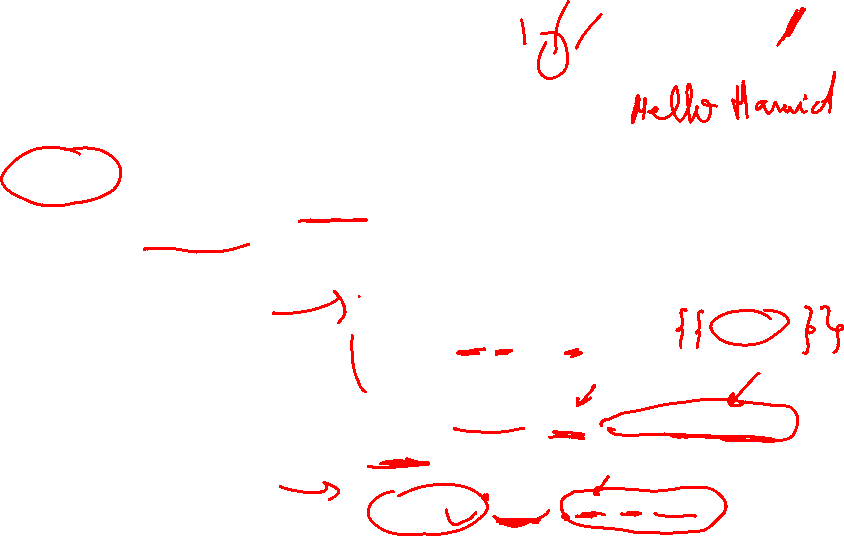 Hello Hamid
{{ }}